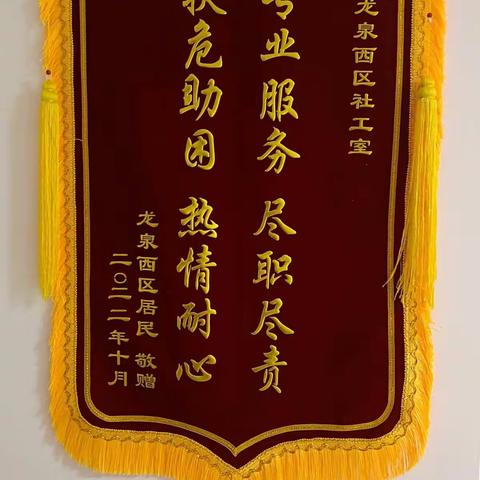 龙泉西区社工室
专业服务 尽职尽责
扶危助困 热情耐心
龙泉西区居民 敬赠
二〇二二年十月